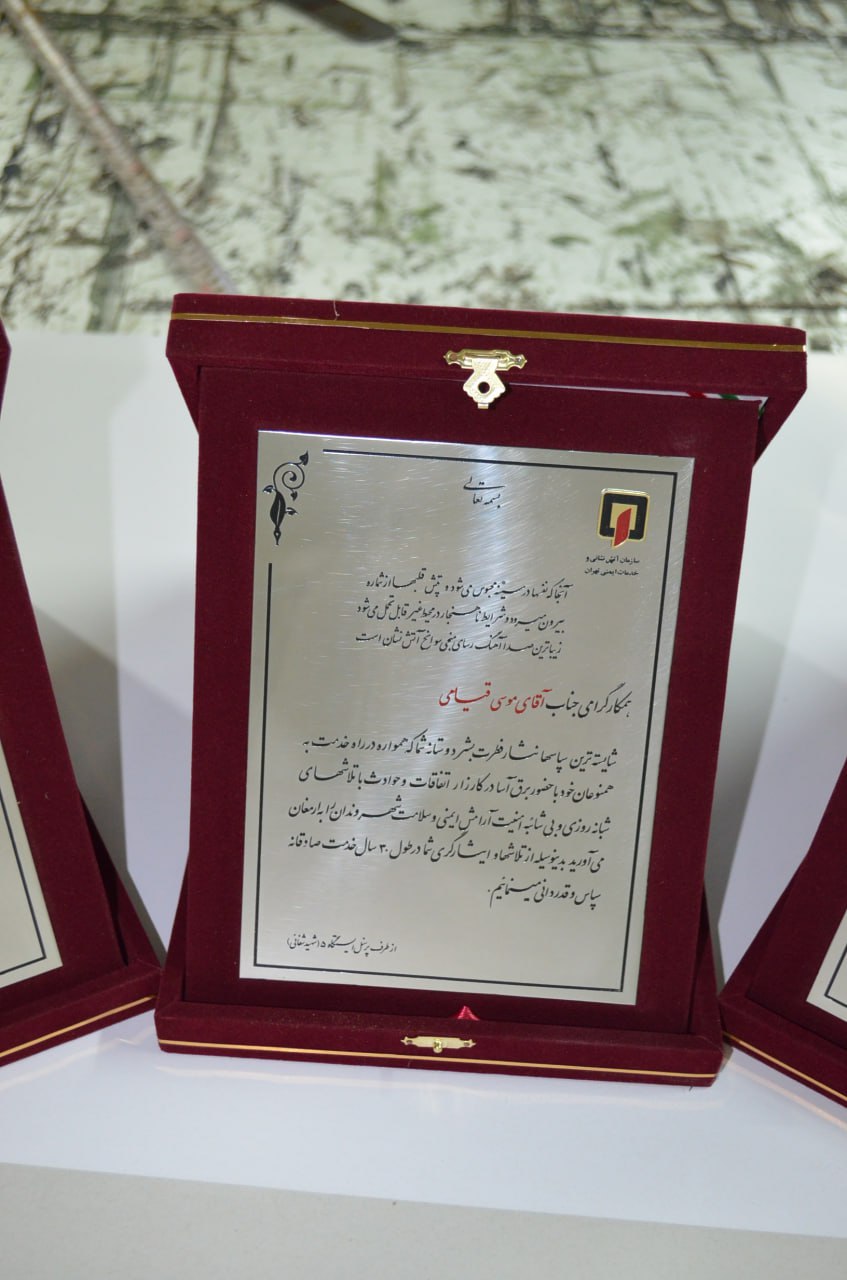 بسمه تعالی
سازمان آتش نشانی و
خدمات ایمنی تهران
آنجا که نفسها در سینه محبوس می شود و تپش قلبها از شماره
بیرون میرود و شرایط ناهنجار در محیط غیر قابل تحمل می شود
زیباترین صدا آهنگ رسای منجی سوانح آتش نشان است
همکار گرامی جناب آقای موسی قیامی
شایسته ترین سپاسها نثار فطرت بشر دوستانه شما که همواره در راه خدمت به
همنوعان خود با حضور برق آسا در کارزار اتفاقات و حوادث با تلاشهای
شبانه روزی و بی شائبه امنیت آرامش ایمنی و سلامت شهروندان را به ارمغان
می آورید بدینوسیله از تلاشها و ایثارگری شما در طول ۳۰ سال خدمت صادقانه
سپاس و قدردانی مینمائیم.
از طرف پرسنل ایستگاه ۵ (شهید شفائی)